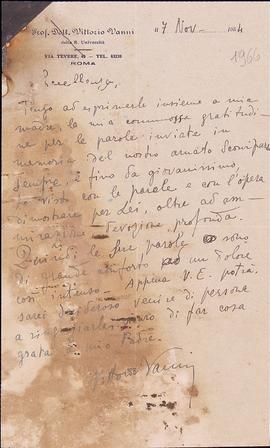 Prof. Dott. Vittorio Vanni
della R. Università
VIA TEVERE, 46 - TEL.
ROMA
7 Nov.
1966
Eccellenza,
Tengo ad esprimerle insieme a mia
madre, la mia commossa gratitudi-
ne per le parole inviate in
memoria del nostro amato Scomparso
Sempre, e fino da giovanissimo,
ho visto con le parole e con l'opera
dimostrare per Lei, oltre ad am-
mirazione devozione profonda.
Quindi le Sue parole sono
di grande conforto ad un dolore
così intenso. Appena V. E. potrà,
sarei desideroso venire di persona
a ringraziarla, di far cosa
grata mio Padre.
Vittorio Vanni